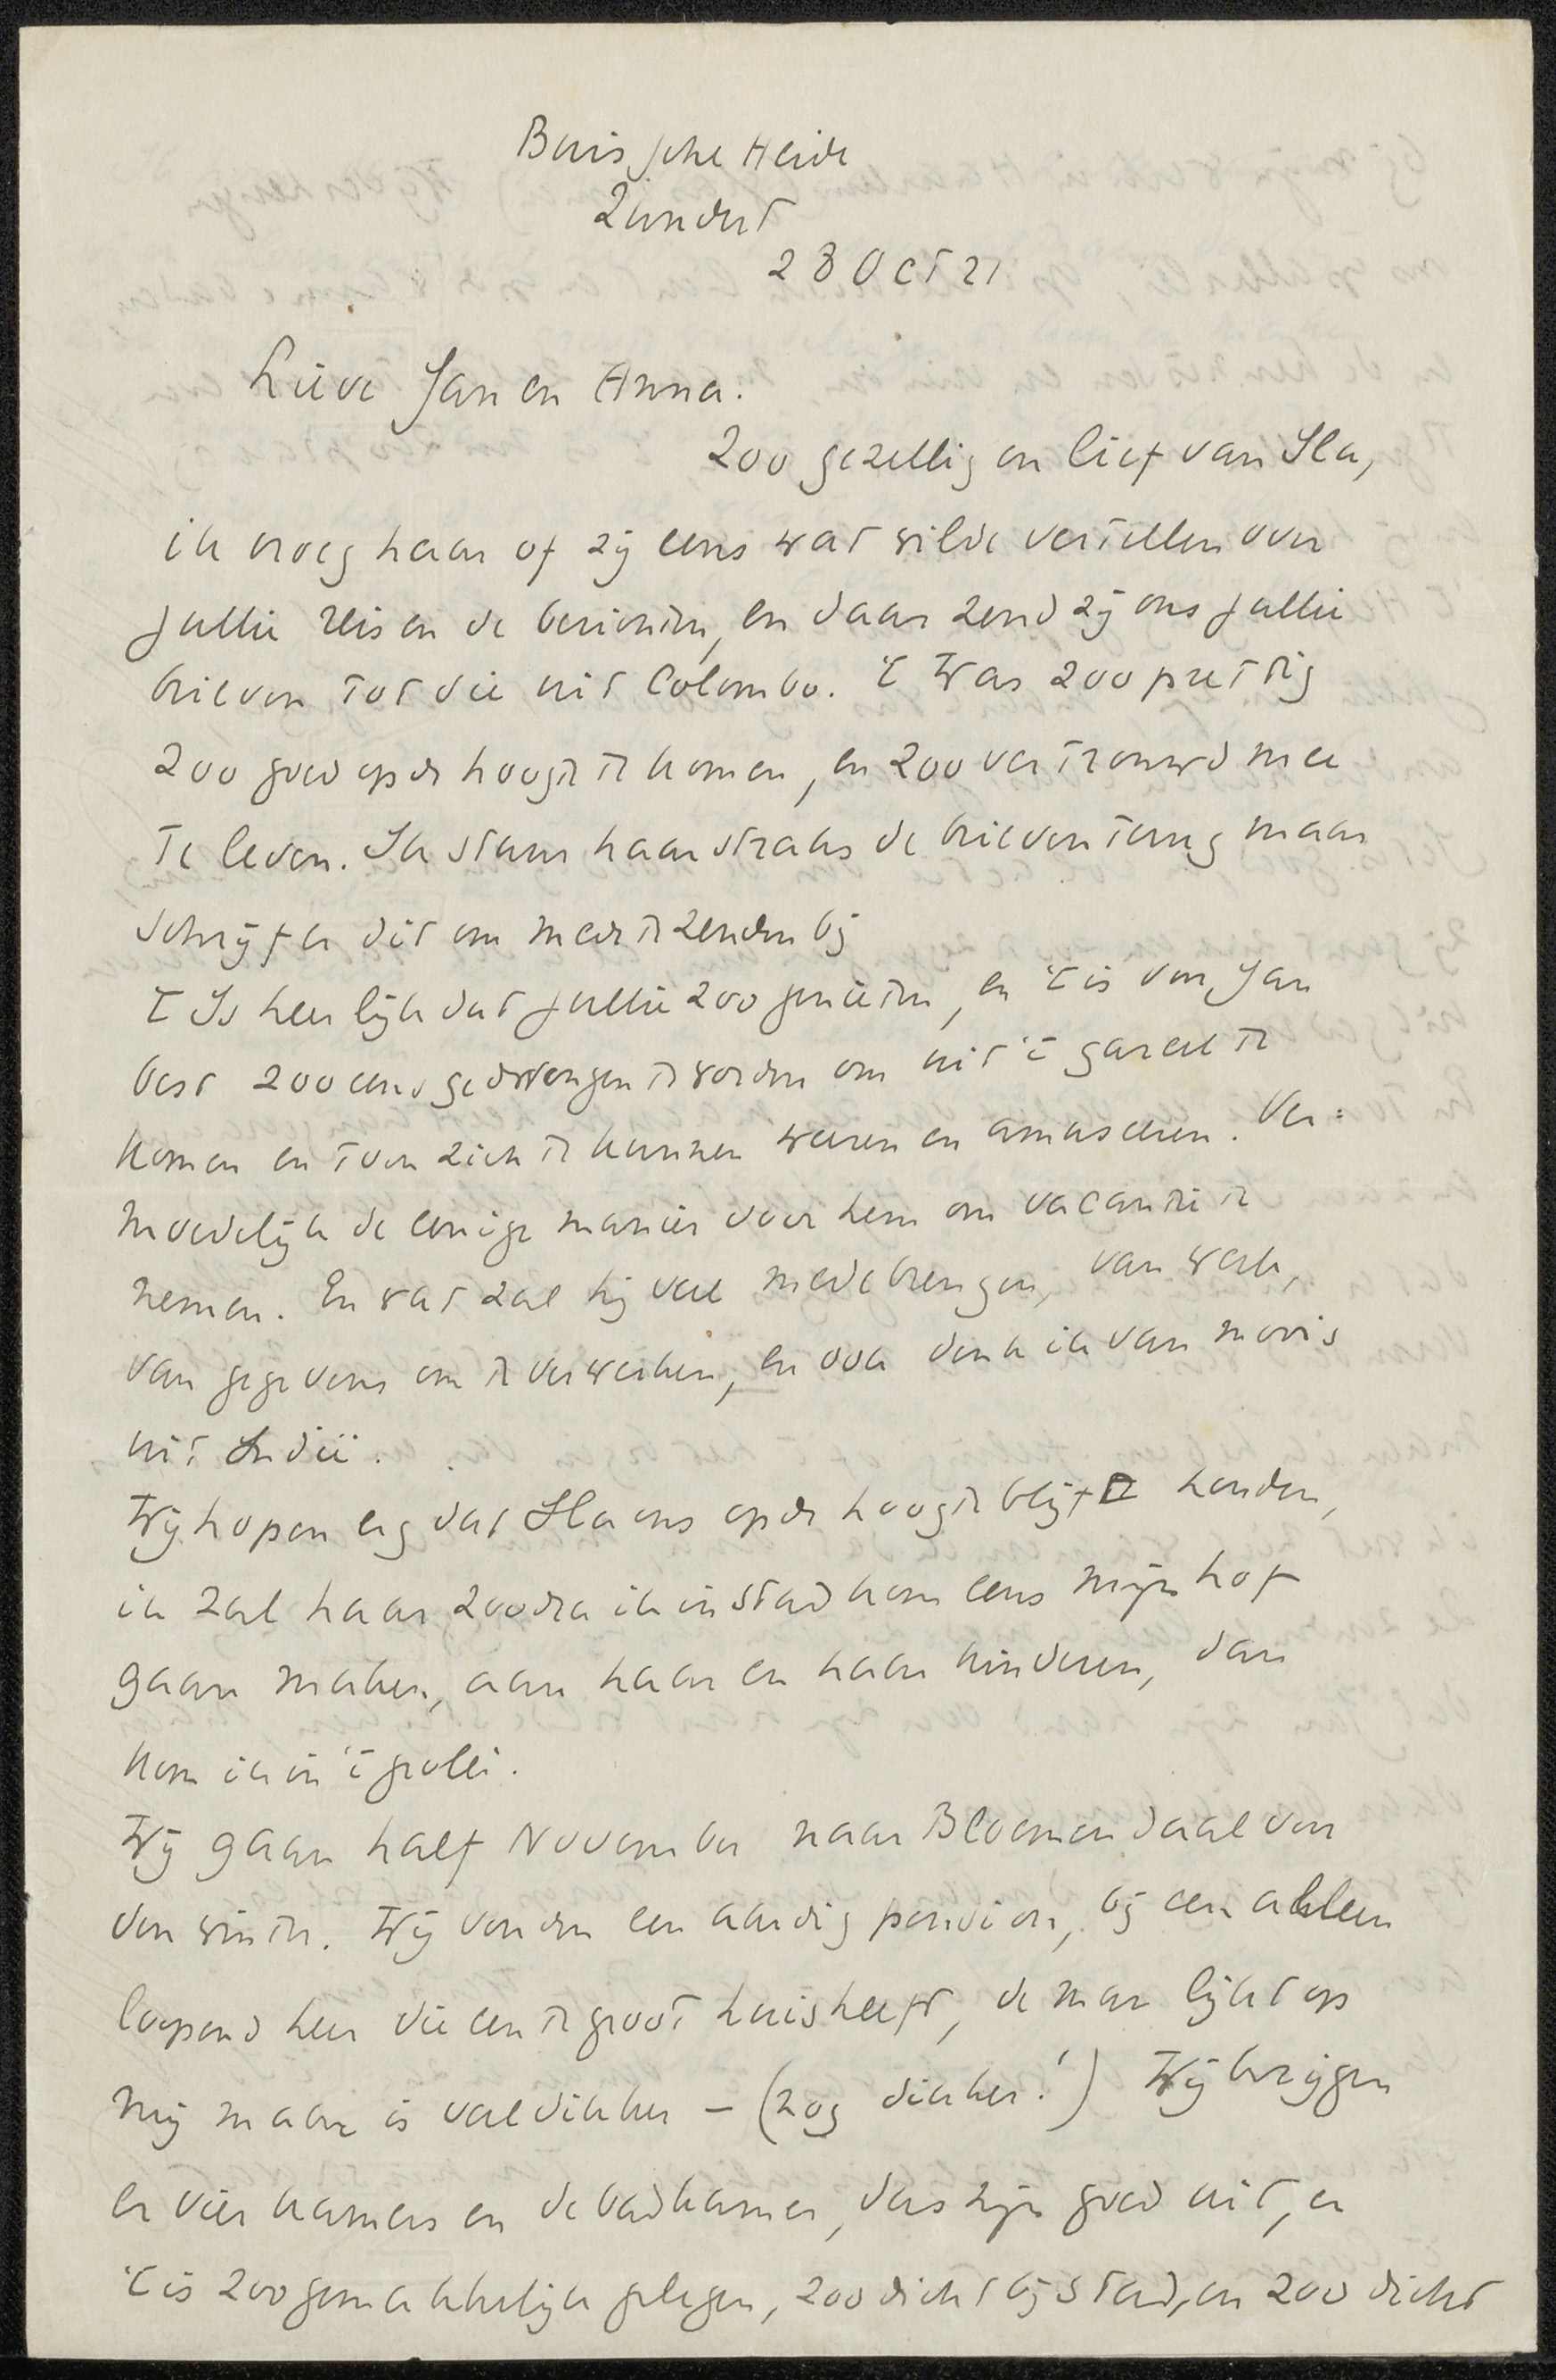 Buissche Heide
Zundert
28 Oct 21
Lieve Jan en Anna.
Zoo gezellig en lief van Ila,
ik vroeg haar of zij eens wat wilde vertellen over
jullie reis en de berichten, en daar zend zij ons jullie
brieven tot die uit Colombo. 't Was zoo prettig
zoo goed op de hoogte te komen, en zoo vertrouwd mee
te leven. Ik stuur haar straks de brieven terug maar
schrijf er dit om mede te zenden bij
't Is heerlijk dat jullie zoo genieten, en 't is voor Jan
best zoo eens gedwongen te worden om uit 't gareel te
komen en toen zich te kunnen weren en amuseeren. Ver=
moedelijk de eenige manier voor hem om vacantie te
nemen. En wat zal hij veel medebrengen, van werk,
van gegevens om te verwerken, en ook denk ik van moois
uit Indië.
Wij hopen erg dat Ila ons op de hoogte blijft houden,
ik zal haar zoodra ik in stad kom eens mijn hof
gaan maken, aan haar en haar kinderen, dan
kom ik in 't gevlei.
Wij gaan half November naar Bloemendaal voor
den winter. Wij vonden een aardig pension, bij een alleen
loopend heer die een te groot huis heeft, de man lijkt op
mij maar is veel dikker – (nog dikker!) Wij krijgen
er vier kamers en de badkamer, dus zijn goed uit, en
't is zoo gemakkelijk gelegen, zoo dicht bij stad, en zoo dicht